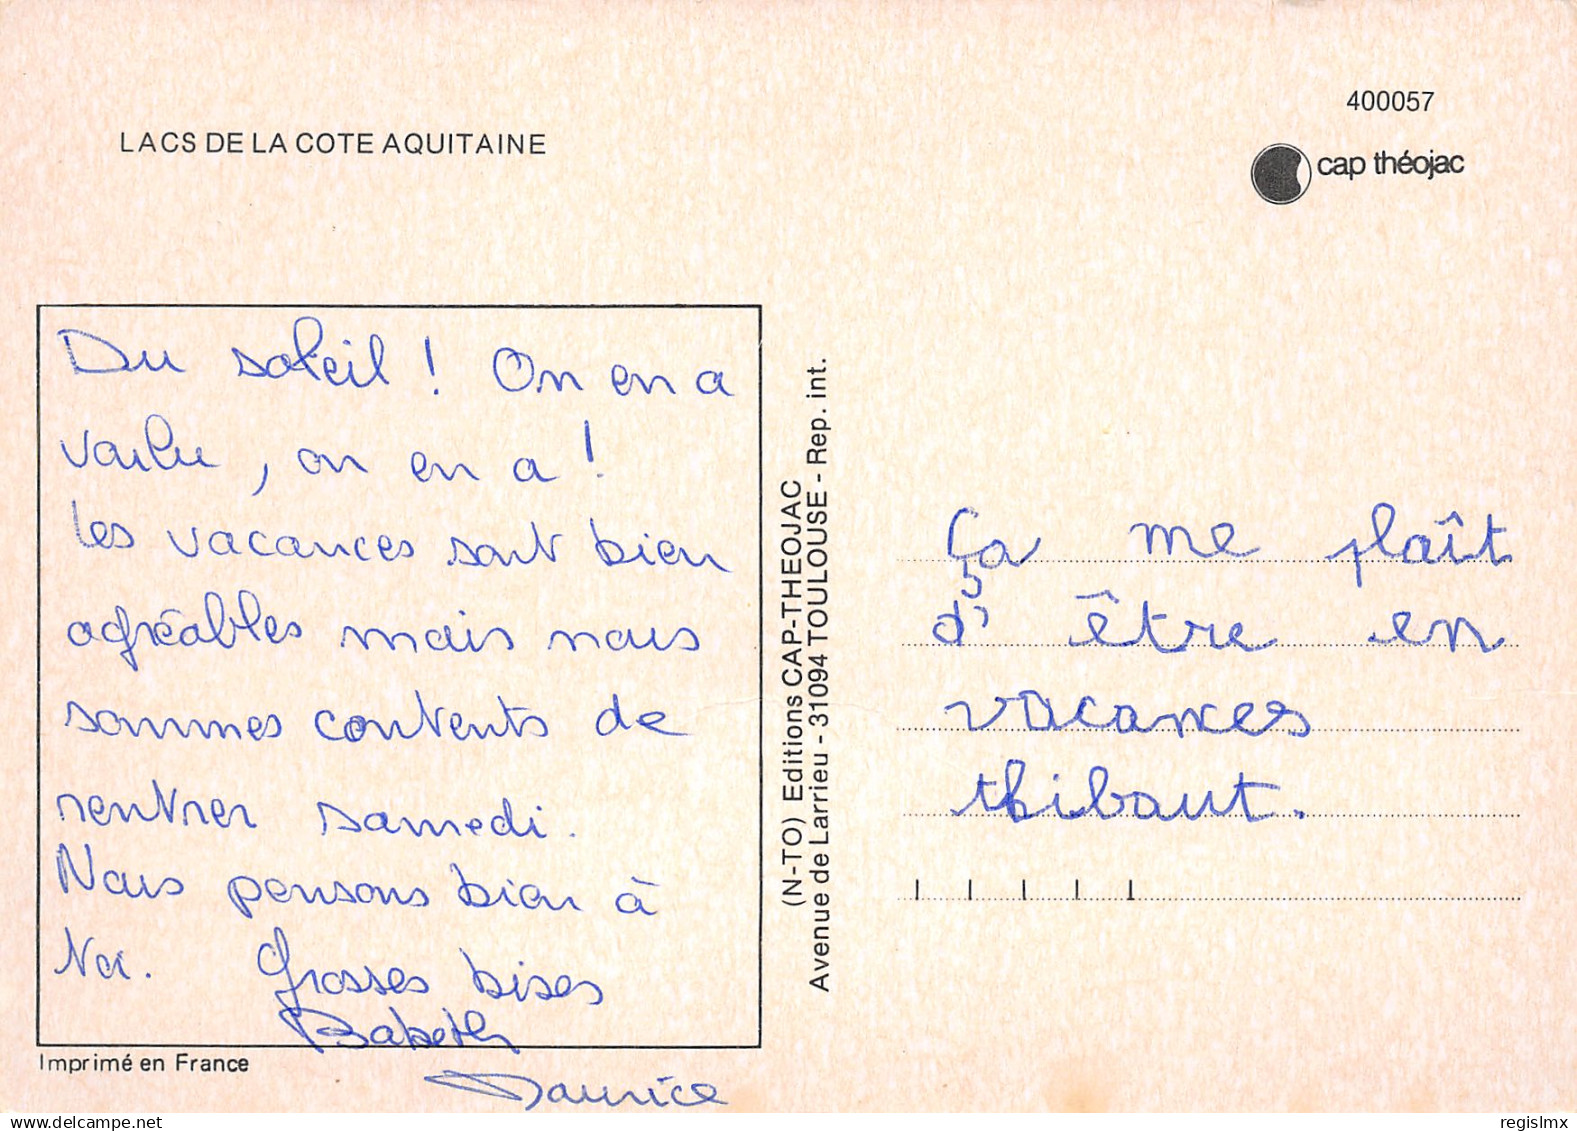 LACS DE LA COTE AQUITAINE
400057
cap théojac
Du soleil ! On en a
voulu, on en a !
Les vacances sont bien
agréables mais nous
sommes contents de
rentrer samedi.
Nous pensons bien à
toi. Grosses bises
Babeth
Maurice
Imprimé en France
(N-TO) Editions CAP-THEOJAC
Avenue de Larrieu - 31094 TOULOUSE - Rep. int.
Ça me plaît
d'être en
vacances
thibaut.
regislmx